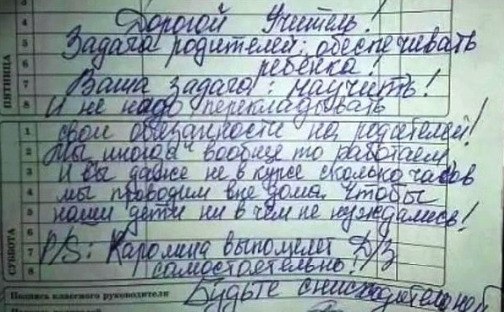 Дорогой Учитель!
Задача родителей: обеспечивать
ребёнка!
Ваша задача: научить!
И не надо перекладывать
свои обязанности на родителей!
Мы иногда вообще то работаем
И вы даже не в курсе сколько часов
мы проводим вне дома, чтобы
наши дети ни в чём не нуждались!
P/S: Каромина выполняет Д/З
самостоятельно!
Будьте снисходительней
ПЯТНИЦА
3
4
5
6
7
8
СУББОТА
1
2
3
4
5
6
7
8
Подпись классного руководителя